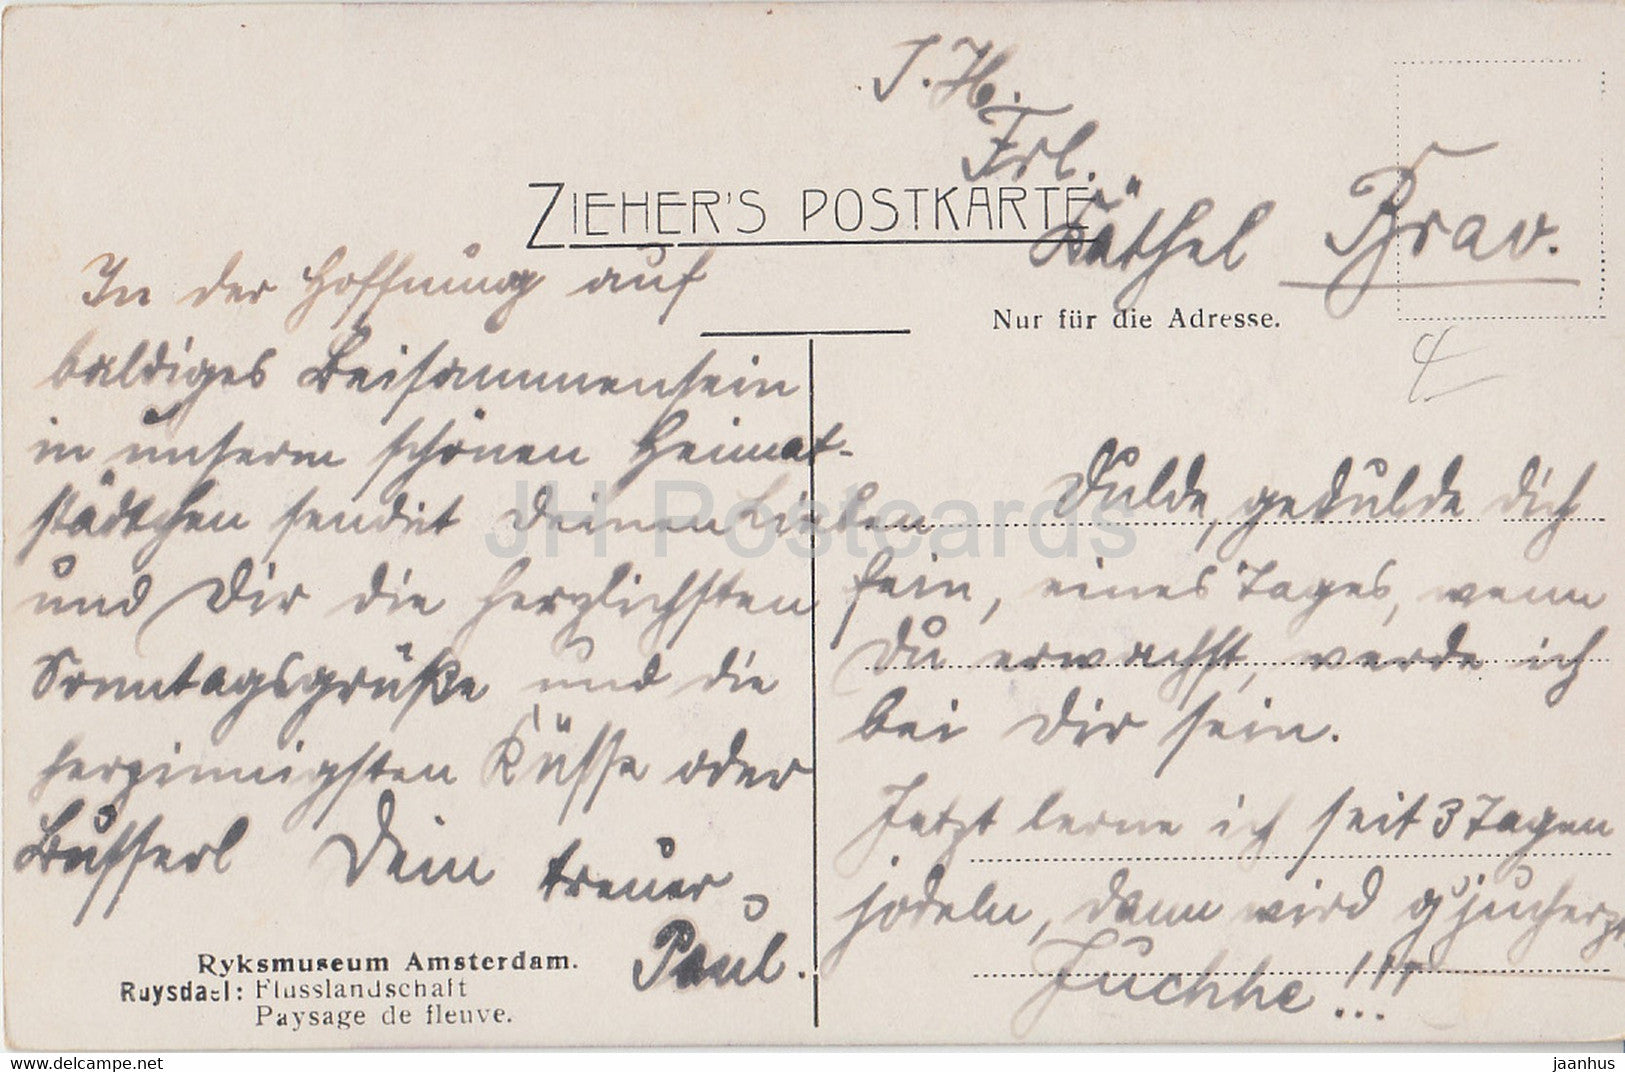 I. H.
Frl.
Käthel Brav.
ZIEHER'S POSTKARTE
Nur für die Adresse.
4
In der Hoffnung auf
baldiges Beisammensein
in unserm schönen Heimat-
städtchen sendet Deinen Lieben
und Dir die herzlichsten
Sonntagsgrüße und die
herzinnigsten Küsse oder
Busserl Dein treuer
Paul.
Dulde, gedulde dich
fein, eines Tages, wenn
Du erwachst, werde ich
bei Dir sein.
Jetzt lerne ich seit 3 Tagen
jodeln, dann wird g'jucherzt
Juchhe!!!
Ryksmuseum Amsterdam.
Ruysdael: Flusslandschaft
Paysage de fleuve.
JH Postcards
https://www.delcampe.net
jaanhus